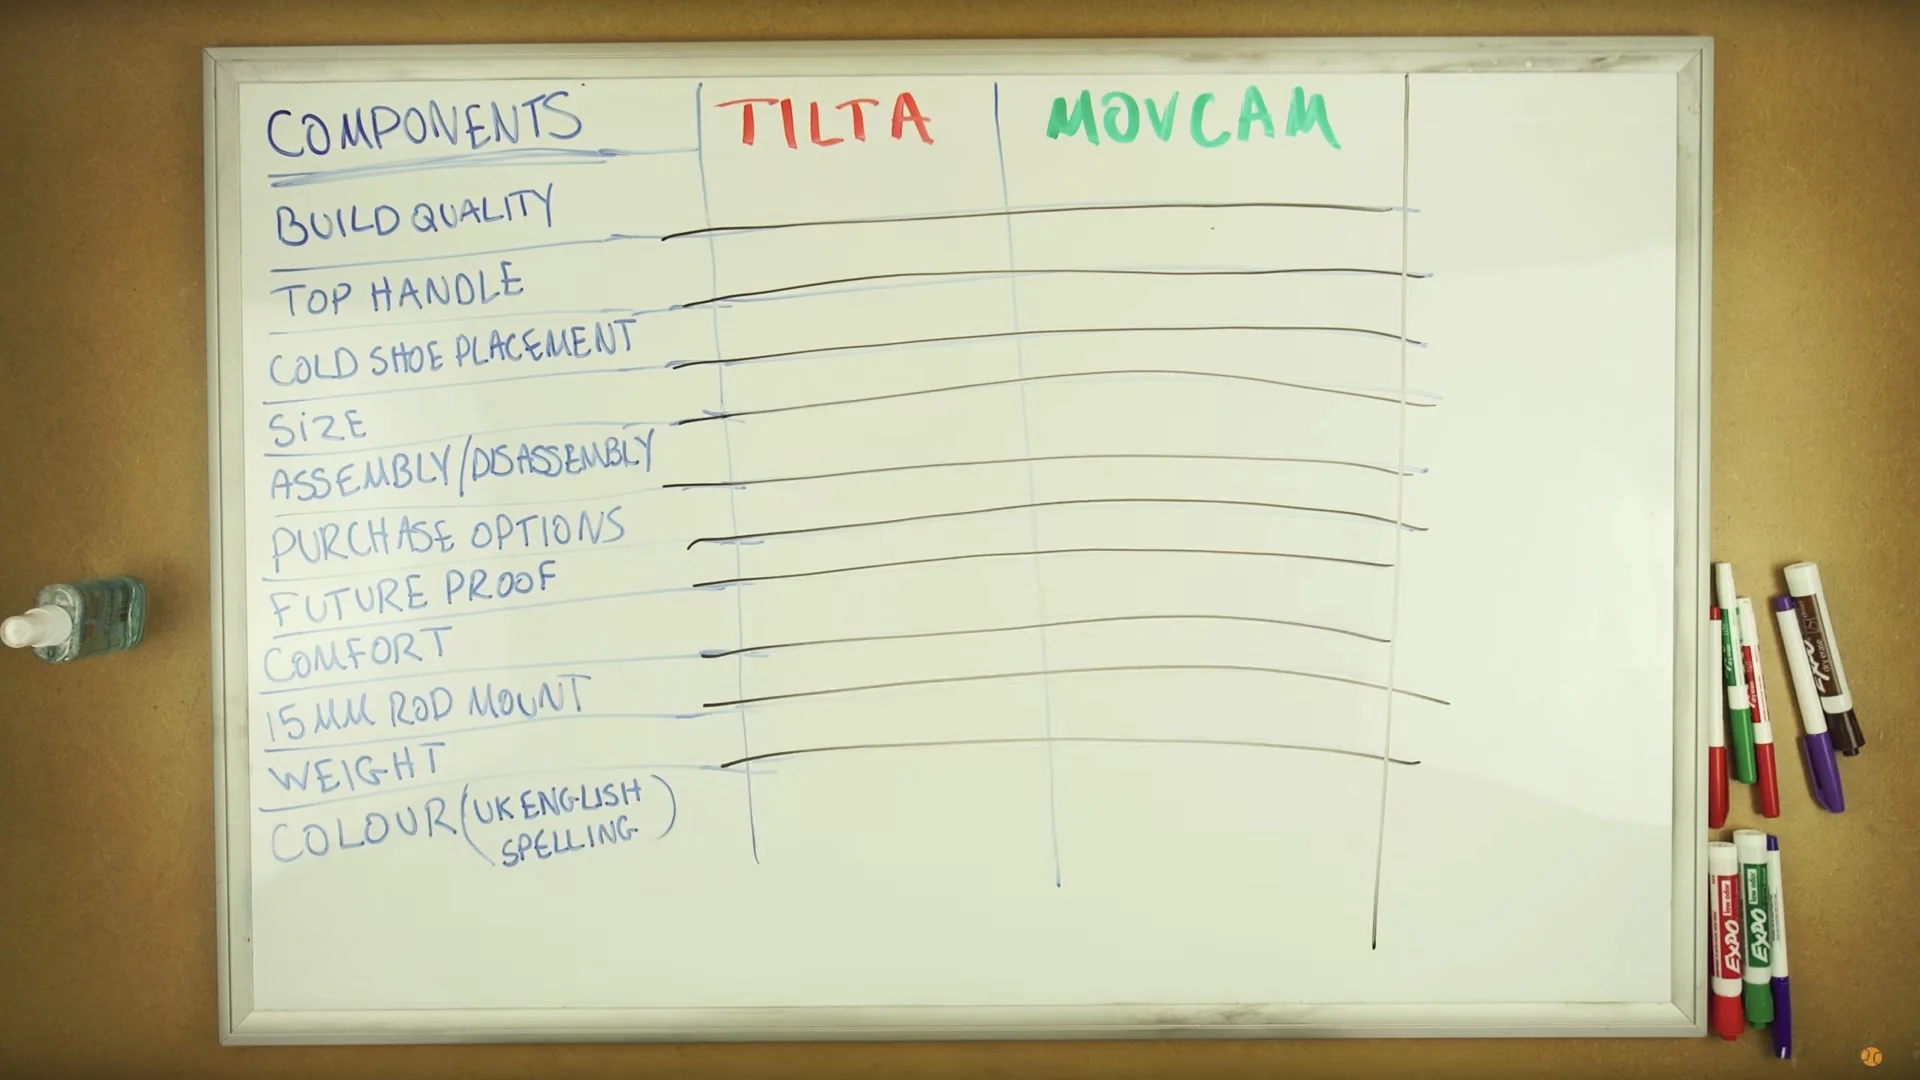 COMPONENTS TILTA MOVCAM
BUILD QUALITY
TOP HANDLE
COLD SHOE PLACEMENT
SIZE
ASSEMBLY/DISASSEMBLY
PURCHASE OPTIONS
FUTURE PROOF
COMFORT
15MM ROD MOUNT
WEIGHT
COLOUR (UK ENGLISH
SPELLING)
EXPO
dry erase
EXPO
low odor
EXPO
low odor